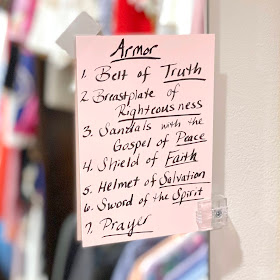 Armor
1. Belt of Truth
2. Breastplate of
Righteousness
3. Sandals with the
Gospel of Peace
4. Shield of Faith
5. Helmet of Salvation
6. Sword of the Spirit
7. Prayer